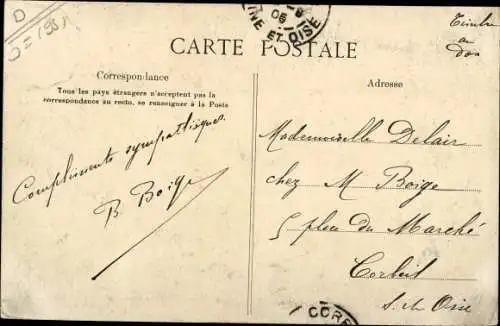 D
Timbre
au
Dos
06
INE ET OISE
CARTE POSTALE
Correspondance
Tous les pays étrangers n'acceptent pas la
correspondance au recto, se renseigner à la Poste
Compliments sympathiques.
B. Boige
Adresse
Mademoiselle Delair
chez M Boige
5 place du Marché
Corbeil
S. et Oise
CORB